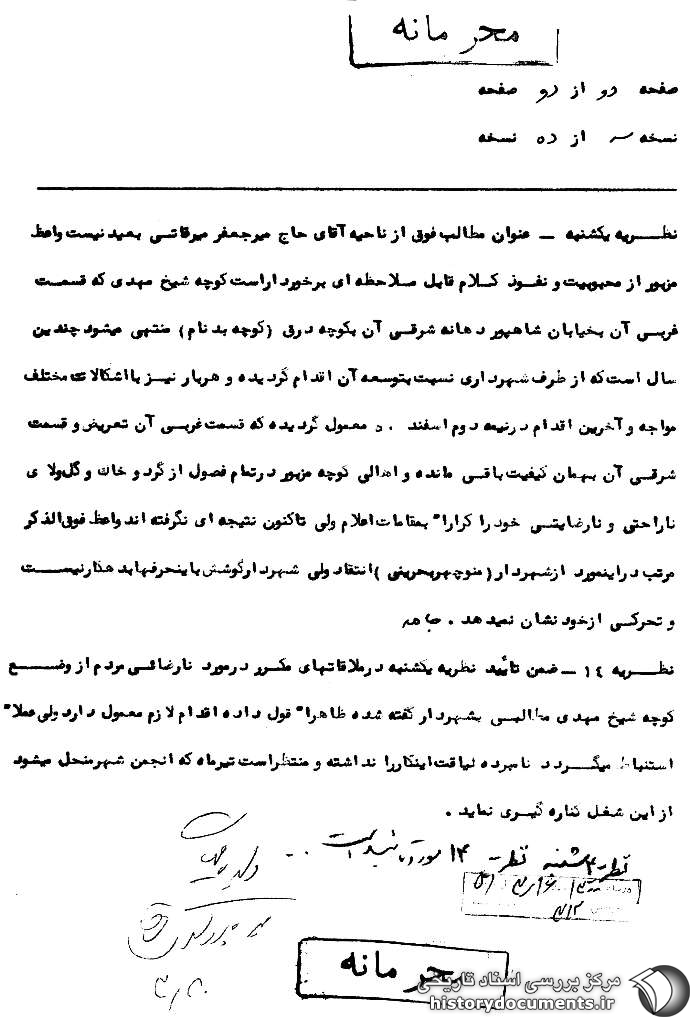 محرمانه
صفحه دو از دو صفحه
نسخه سه از ده نسخه
نظریه یکشنبه - عنوان مطالب فوق از ناحیه آقای حاج میرجعفر میرقاتی بعید نیست واعظ
مزبور از محبوبیت و نفوذ کلام قابل ملاحظه ای برخوردار است کوچه شیخ مهدی که قسمت
غربی آن بخیابان شاهپور دهانه شرقی آن بکوچه درق (کوچه بدنام) منتهی میشود چندین
سال است که از طرف شهرداری نسبت بتوسعه آن اقدام گردیده و هربار نیز با اشکالات مختلف
مواجه و آخرین اقدام در نیمه دوم اسفند ۵۰ معمول گردیده که قسمت غربی آن تعریض و قسمت
شرقی آن بهمان کیفیت باقی مانده و اهالی کوچه مزبور در تمام فصول از گرد و خاک و گل و لا ی
ناراحتی و نارضایتی خود را کرارا" بمقامات اعلام ولی تاکنون نتیجه ای نگرفته اند واعظ فوق الذکر
مرتب در اینمورد از شهردار (منوچهر بحرینی) انتقاد ولی شهردار گوشش باینحرفها بدهکار نیست
و تحرکی از خود نشان نمیدهد .
نظریه ۱۴ - ضمن تائید نظریه یکشنبه در ملاقاتهای مکرر در مورد نارضائی مردم از وضع
کوچه شیخ مهدی مطالبی بشهردار گفته شده ظاهرا" قول داده اقدام لازم معمول دارد ولی عملا"
استنباط میگردد نامبرده لیاقت اینکار را نداشته و منتظر است تیرماه که انجمن شهر منحل میشود
از این شغل کناره گیری نماید .
نظریه ۴ شنبه نظریه ۱۴ مورد تائید است
محرمانه
مرکز بررسی اسناد تاریخی
historydocuments.ir